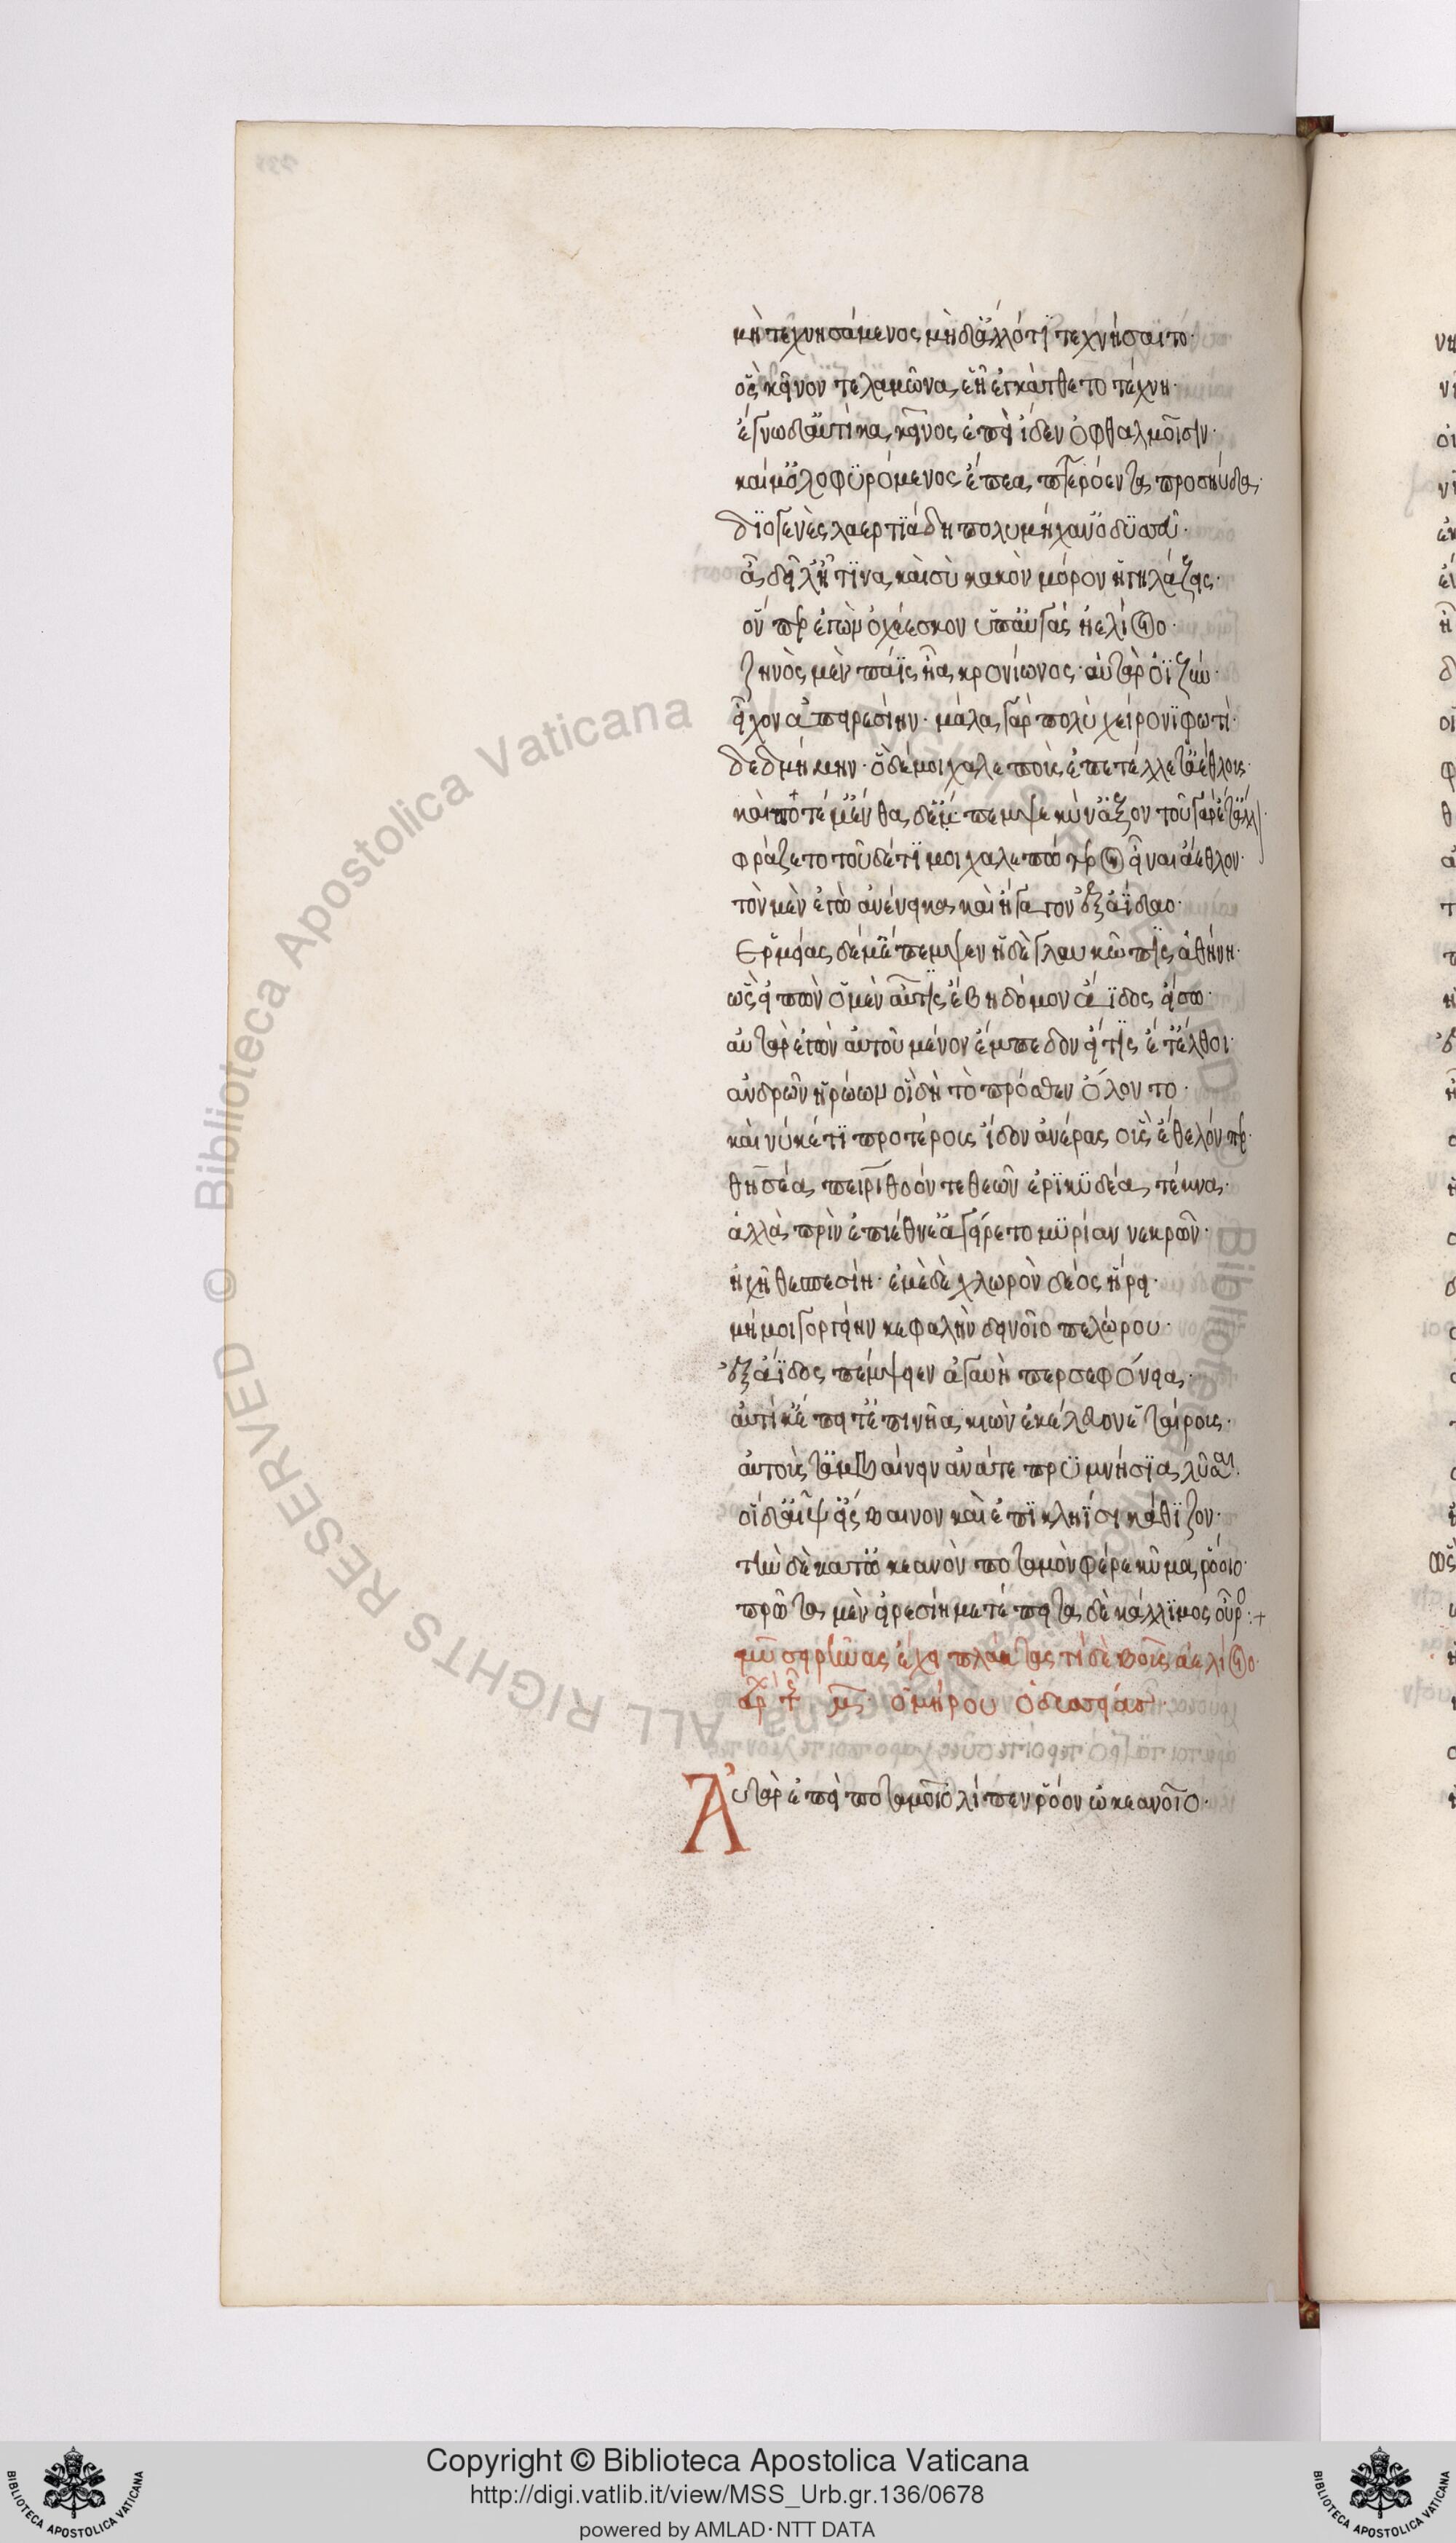 μὴ τεχνησάμενος μὴδ' ἄλλό τϊ τεχνήσαιτο·
ὃς κεῖνον τελαμῶνα ἑῇ ἐγκάτθετο τέχνη·
ἔγνω δ' αὐτίκα κεῖνος ἐπεὶ ἴδεν ὀφθαλμοῖσιν·
καί μ' ὀλοφϋρόμενος ἔπεα πτερόεντα προσηύδα·
δϊογενὲς λαερτϊάδη πολυμήχαν' ὀδϋσσεῦ·
ἆ δείλ' ἦ τϊνα καὶ σὺ κακὸν μόρον ἡγηλάζεις·
ὅν περ ἐγὼν ὀχέεσκον ὑπ' αὐγὰς ἠελίοιο·
ζηνὸς μὲν πάϊς ἦα κρονίωνος· αὐτὰρ ὀϊζὺν·
εἶχον ἀπειρεσίην· μάλα γὰρ πολὺ χείρονϊ φωτὶ·
δεδμήμην· ὁ δέ μοι χαλεποὺς ἐπετέλλετ' ἀέθλους·
καί ποτέ μ' ἐνθάδε μ' ἔπεμψε κύν' ἄξοντ' οὐ γὰρ ἔτ' ἄλλ
φράζετο τοῦδέ τϊ μοι χαλεπώτερον εἶναι ἄεθλον·
τὸν μὲν ἐγὼ ἀνένεικα καὶ ἤγαγον ἐξ ἀΐδαο·
Ἑρμείας δέ μ' ἔπεμψεν ἠδὲ γλαυκῶπις ἀθήνη·
ὣς εἰπὼν ὁ μὲν αὖτις ἔβη δόμον ἄϊδος εἴσω·
αὐτὰρ ἐγὼν αὐτοῦ μένον ἔμπεδον εἴ τις ἔτ' ἔλθοι·
ἀνδρῶν ἡρώων οἳ δὴ τὸ πρόσθεν ὄλοντο·
καί νύ κ' ἔτϊ προτέρους ἴδον ἀνέρας οὓς ἔθελόν περ·
θησέα πειρίθοόν τε θεῶν ἐρϊκϋδέα τέκνα·
ἀλλὰ πρὶν ἐπὶ ἔθνε' ἀγείρετο μϋρία νεκρῶν·
ἠχῇ θεσπεσίη· ἐμὲ δὲ χλωρὸν δέος ᾕρει·
μή μοι γοργείην κεφαλὴν δεινοῖο πελώρου·
ἐξ ἄϊδος πέμψειεν ἀγαυὴ περσεφόνεια·
αὐτίκ' ἔπειτ' ἐπὶ νῆα κιὼν ἐκέλευον ἑταίρους·
αὐτούς τ' ἀμβαίνειν ἀνά τε πρϋμνήσϊα λῦσαι·
οἱ δ' αἶψ' εἴσβαινον καὶ ἐπὶ κληῗσι κάθϊζον·
τὴν δὲ κατ' ὠκεανὸν ποταμὸν φέρε κῦμα ῥόοιο·
πρῶτα μὲν εἰρεσίη μετέπειτα δὲ κάλλϊμος οὖρο:+
μῦ σειρῆνας ἔχει πλάγκτας τὲ βοῦς ἀελίοιο·
ἀρχ τ μ· ὁμήρου ὀδυσσείασ·
Αὐτὰρ ἐπεὶ ποταμοῖο λίπεν ῥόον ὠκεανοῖο·
Copyright © Biblioteca Apostolica Vaticana
http://digi.vatlib.it/view/MSS_Urb.gr.136/0678
powered by AMLAD·NTT DATA